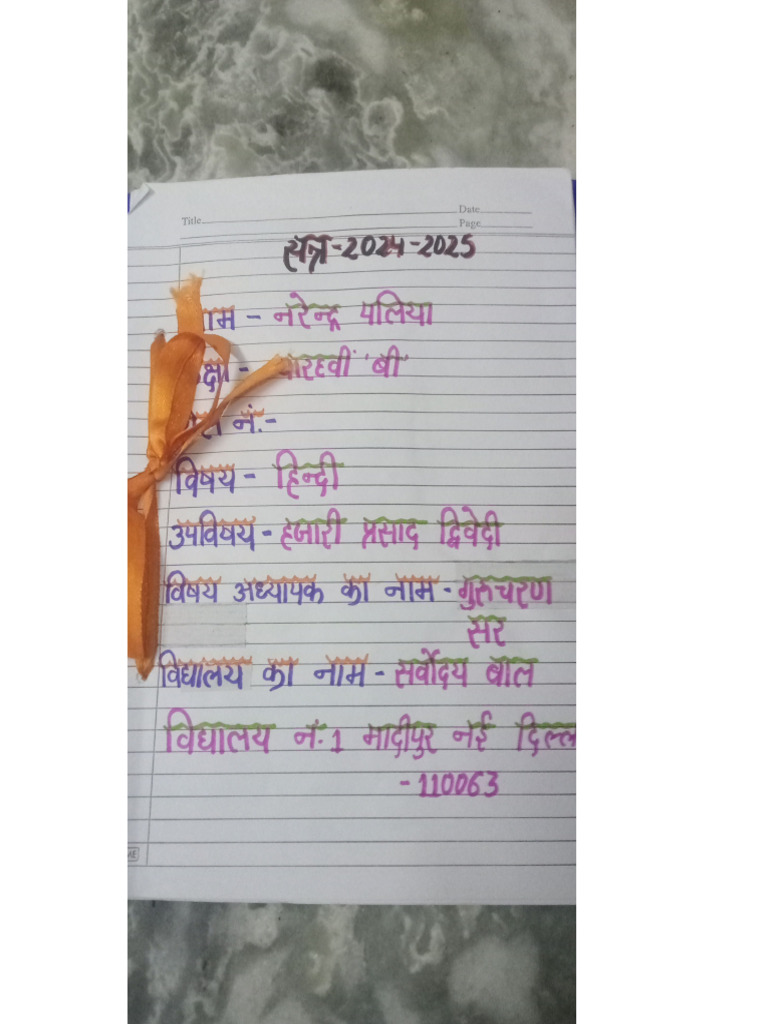 Title
Date
Page
सत्र-2024-2025
नाम - नरेन्द्र पलिया
कक्षा - बारहवीं 'बी'
नं.-
विषय - हिन्दी
उपविषय - हजारी प्रसाद द्विवेदी
विषय अध्यापक का नाम - गुरुचरण
सर
विद्यालय का नाम - सर्वोदय बाल
विद्यालय नं. 1 मादीपुर नई दिल्ल
- 110063